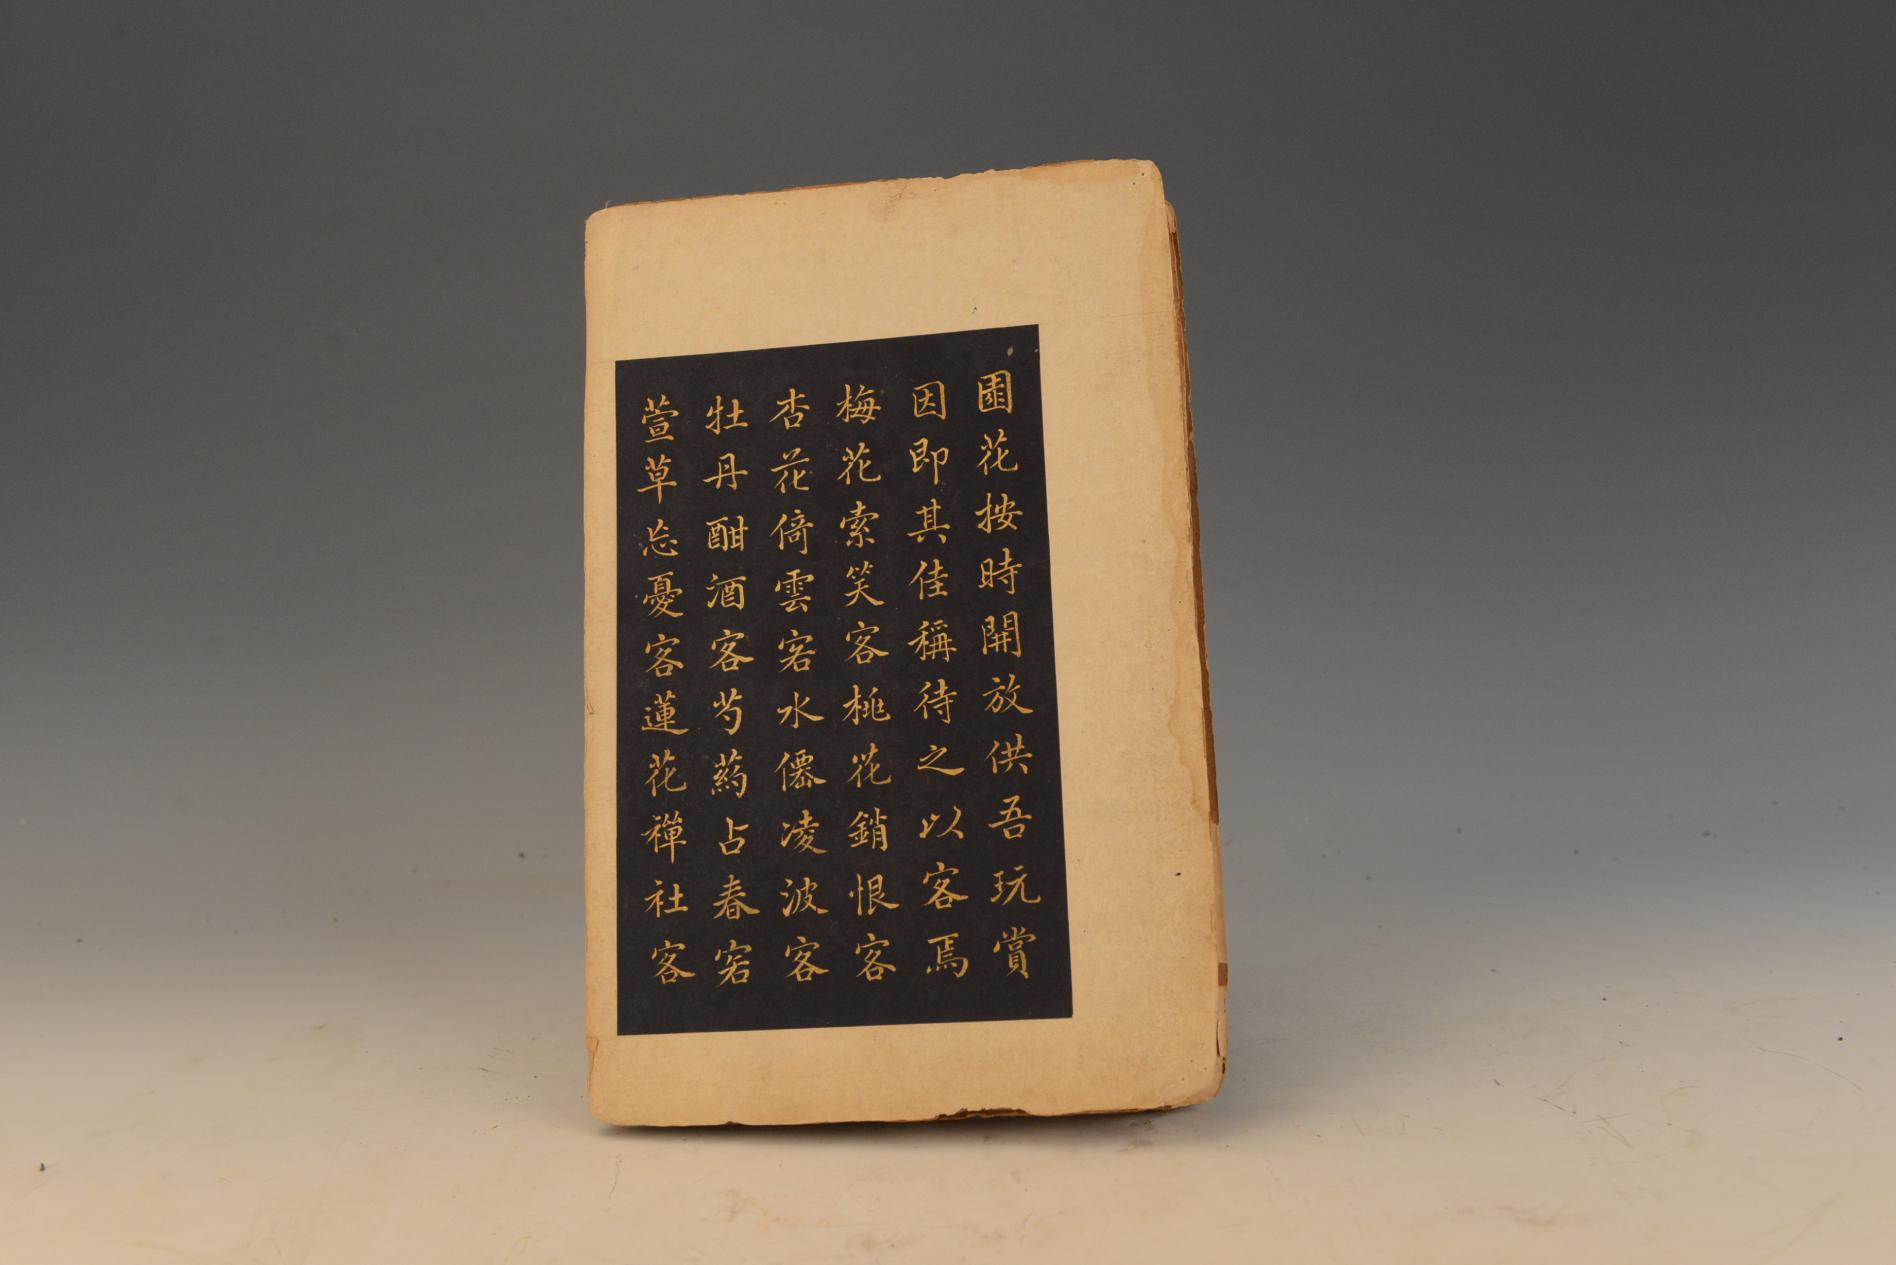 園花按時開放供吾玩賞
因即其佳稱待之以客焉
梅花索笑客桃花銷恨客
杏花倚雲客水僊凌波客
牡丹酣酒客芍藥占春客
萱草忘憂客蓮花禪社客